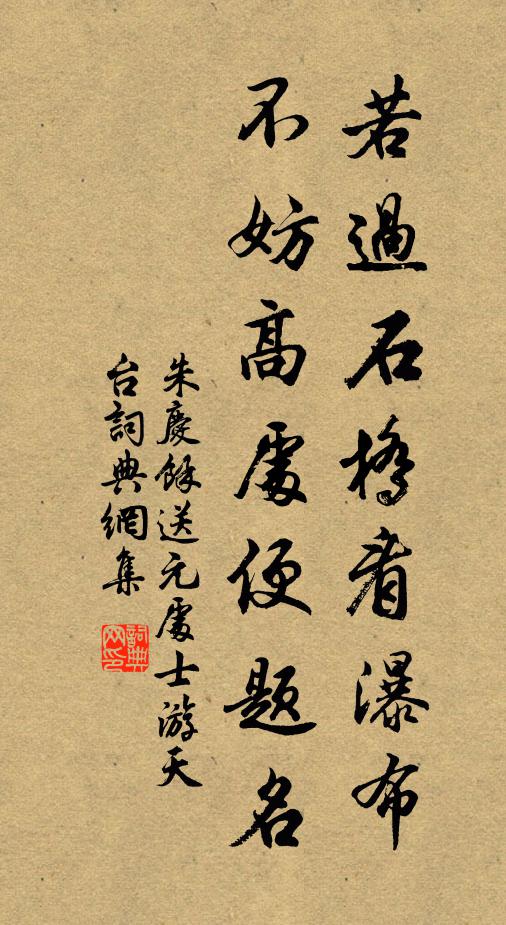 若過石橋看瀑布
不妨高處便題名
朱慶餘送元處士游天
台詞典網集
詞典
网印